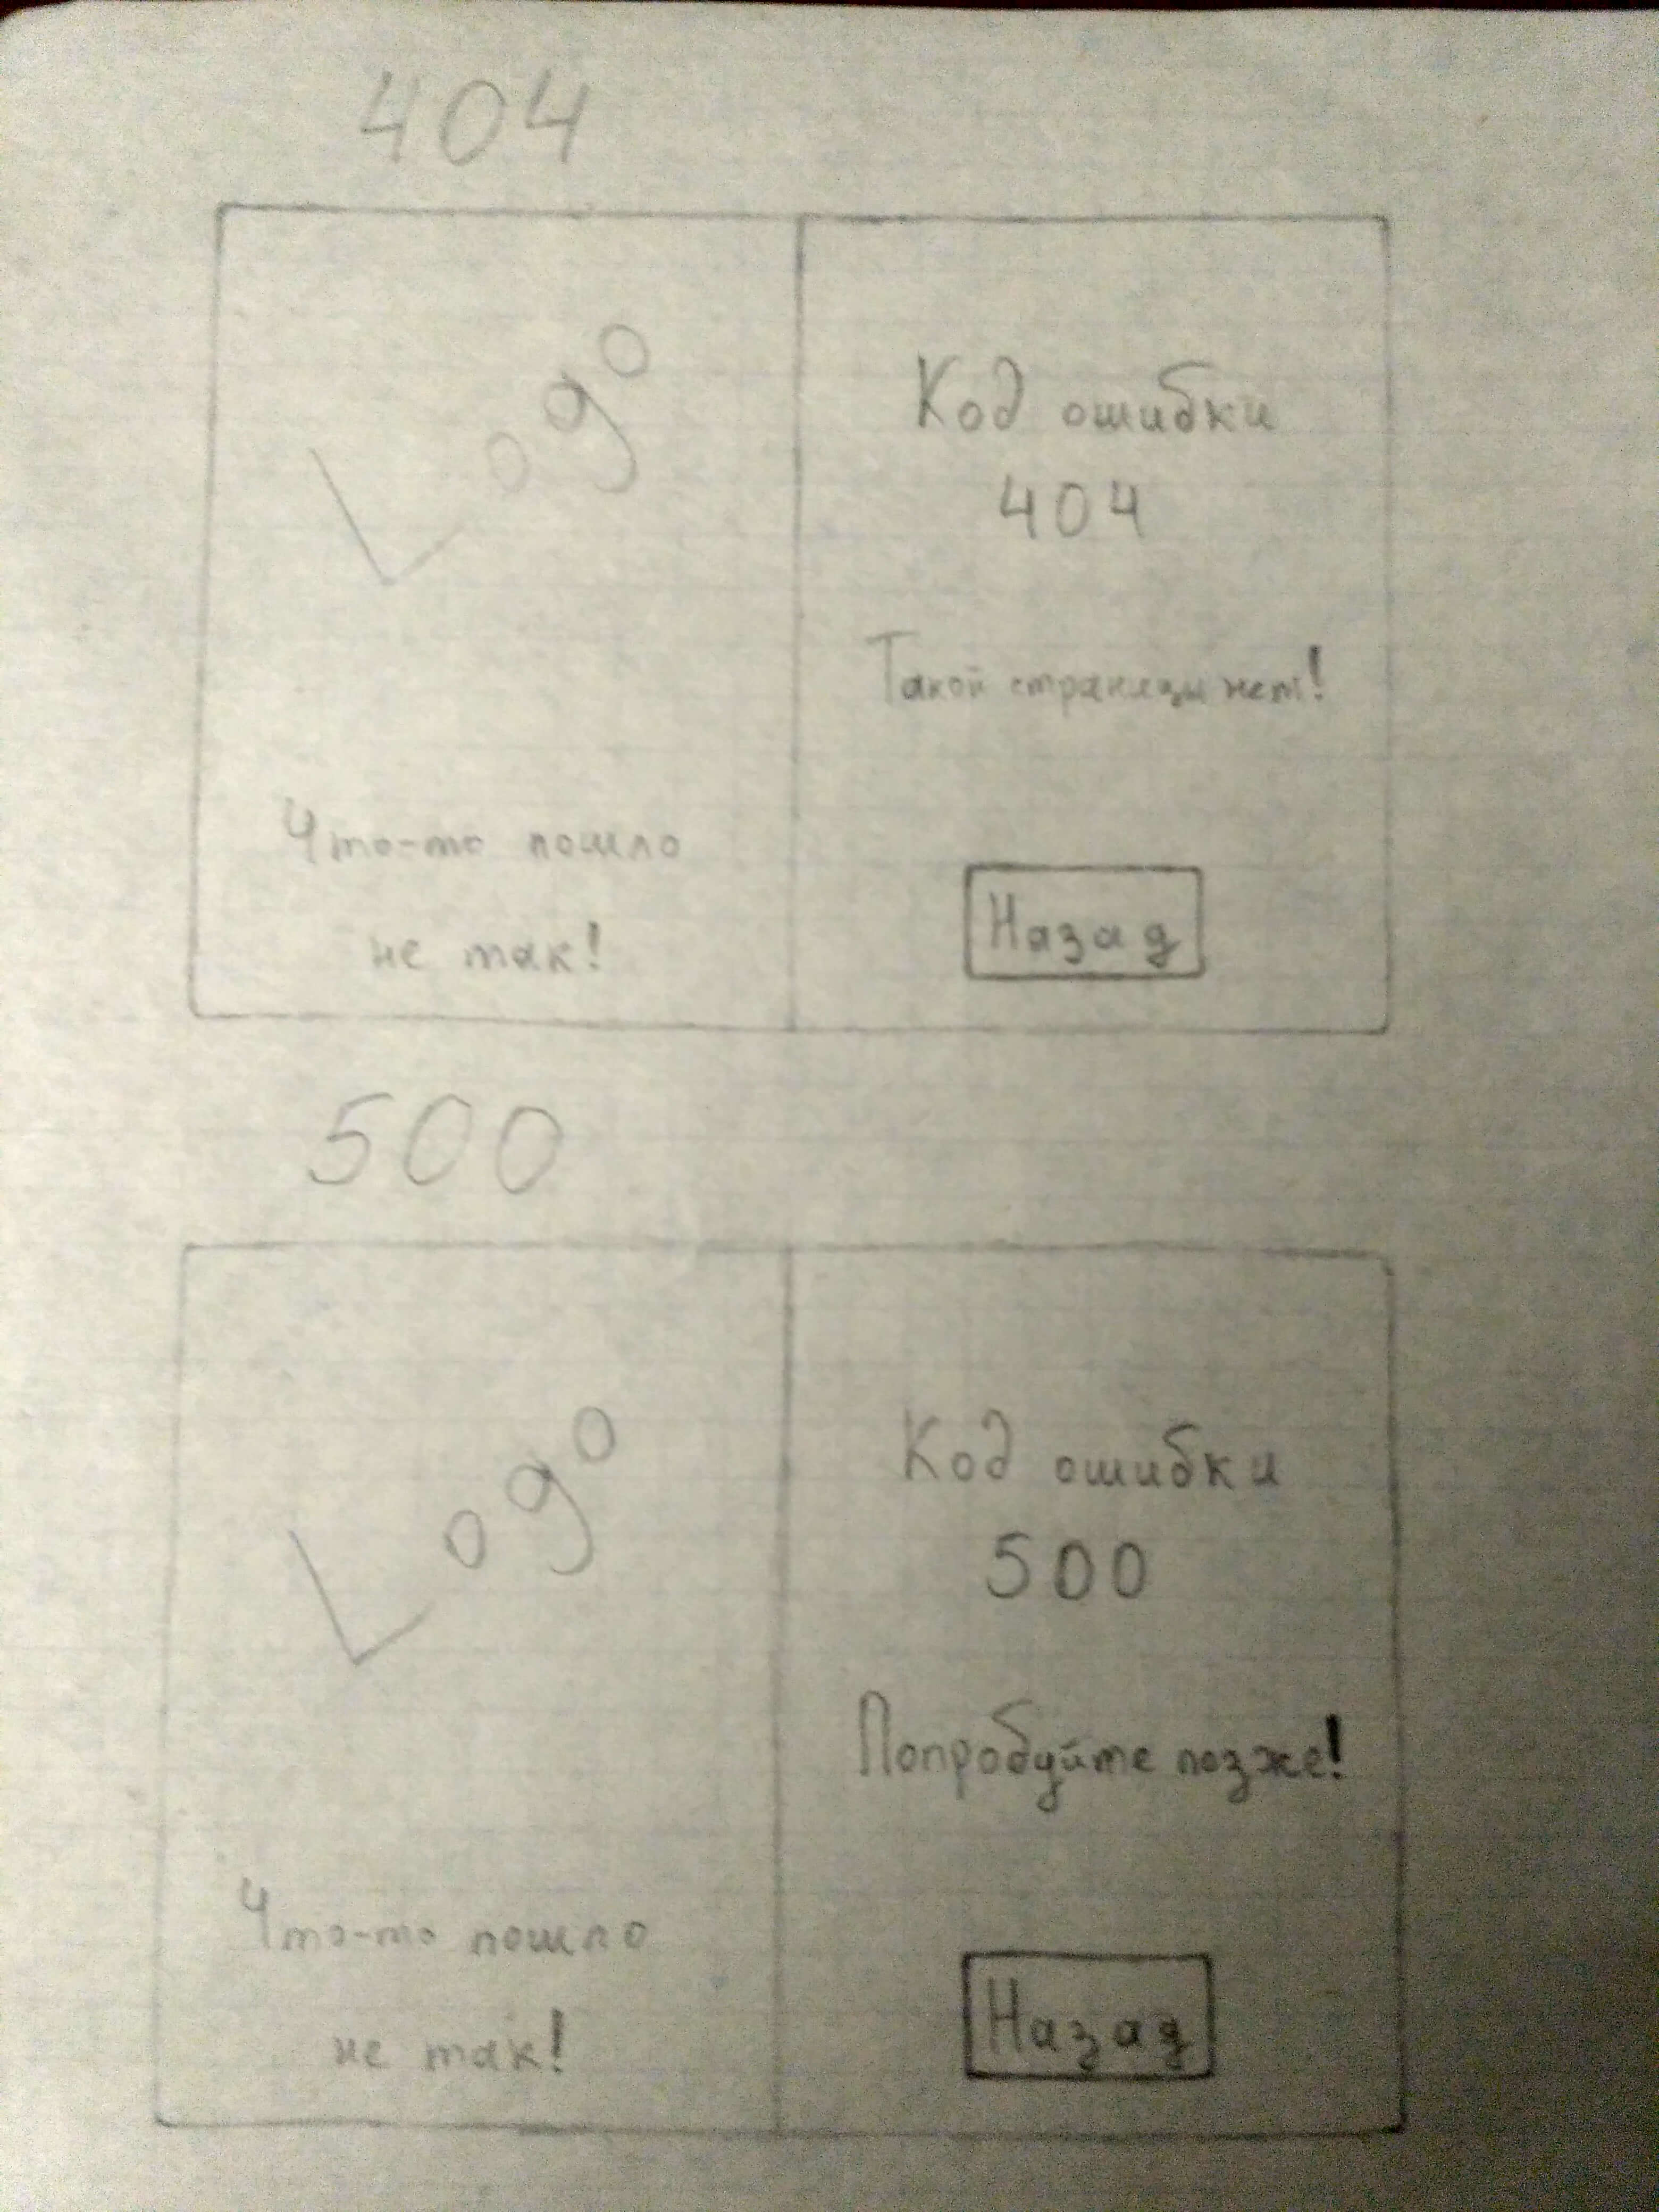 404
Logo
Что-то пошло
не так!
Код ошибки
404
Такой страницы нет!
Назад
500
Logo
Что-то пошло
не так!
Код ошибки
500
Попробуйте позже!
Назад